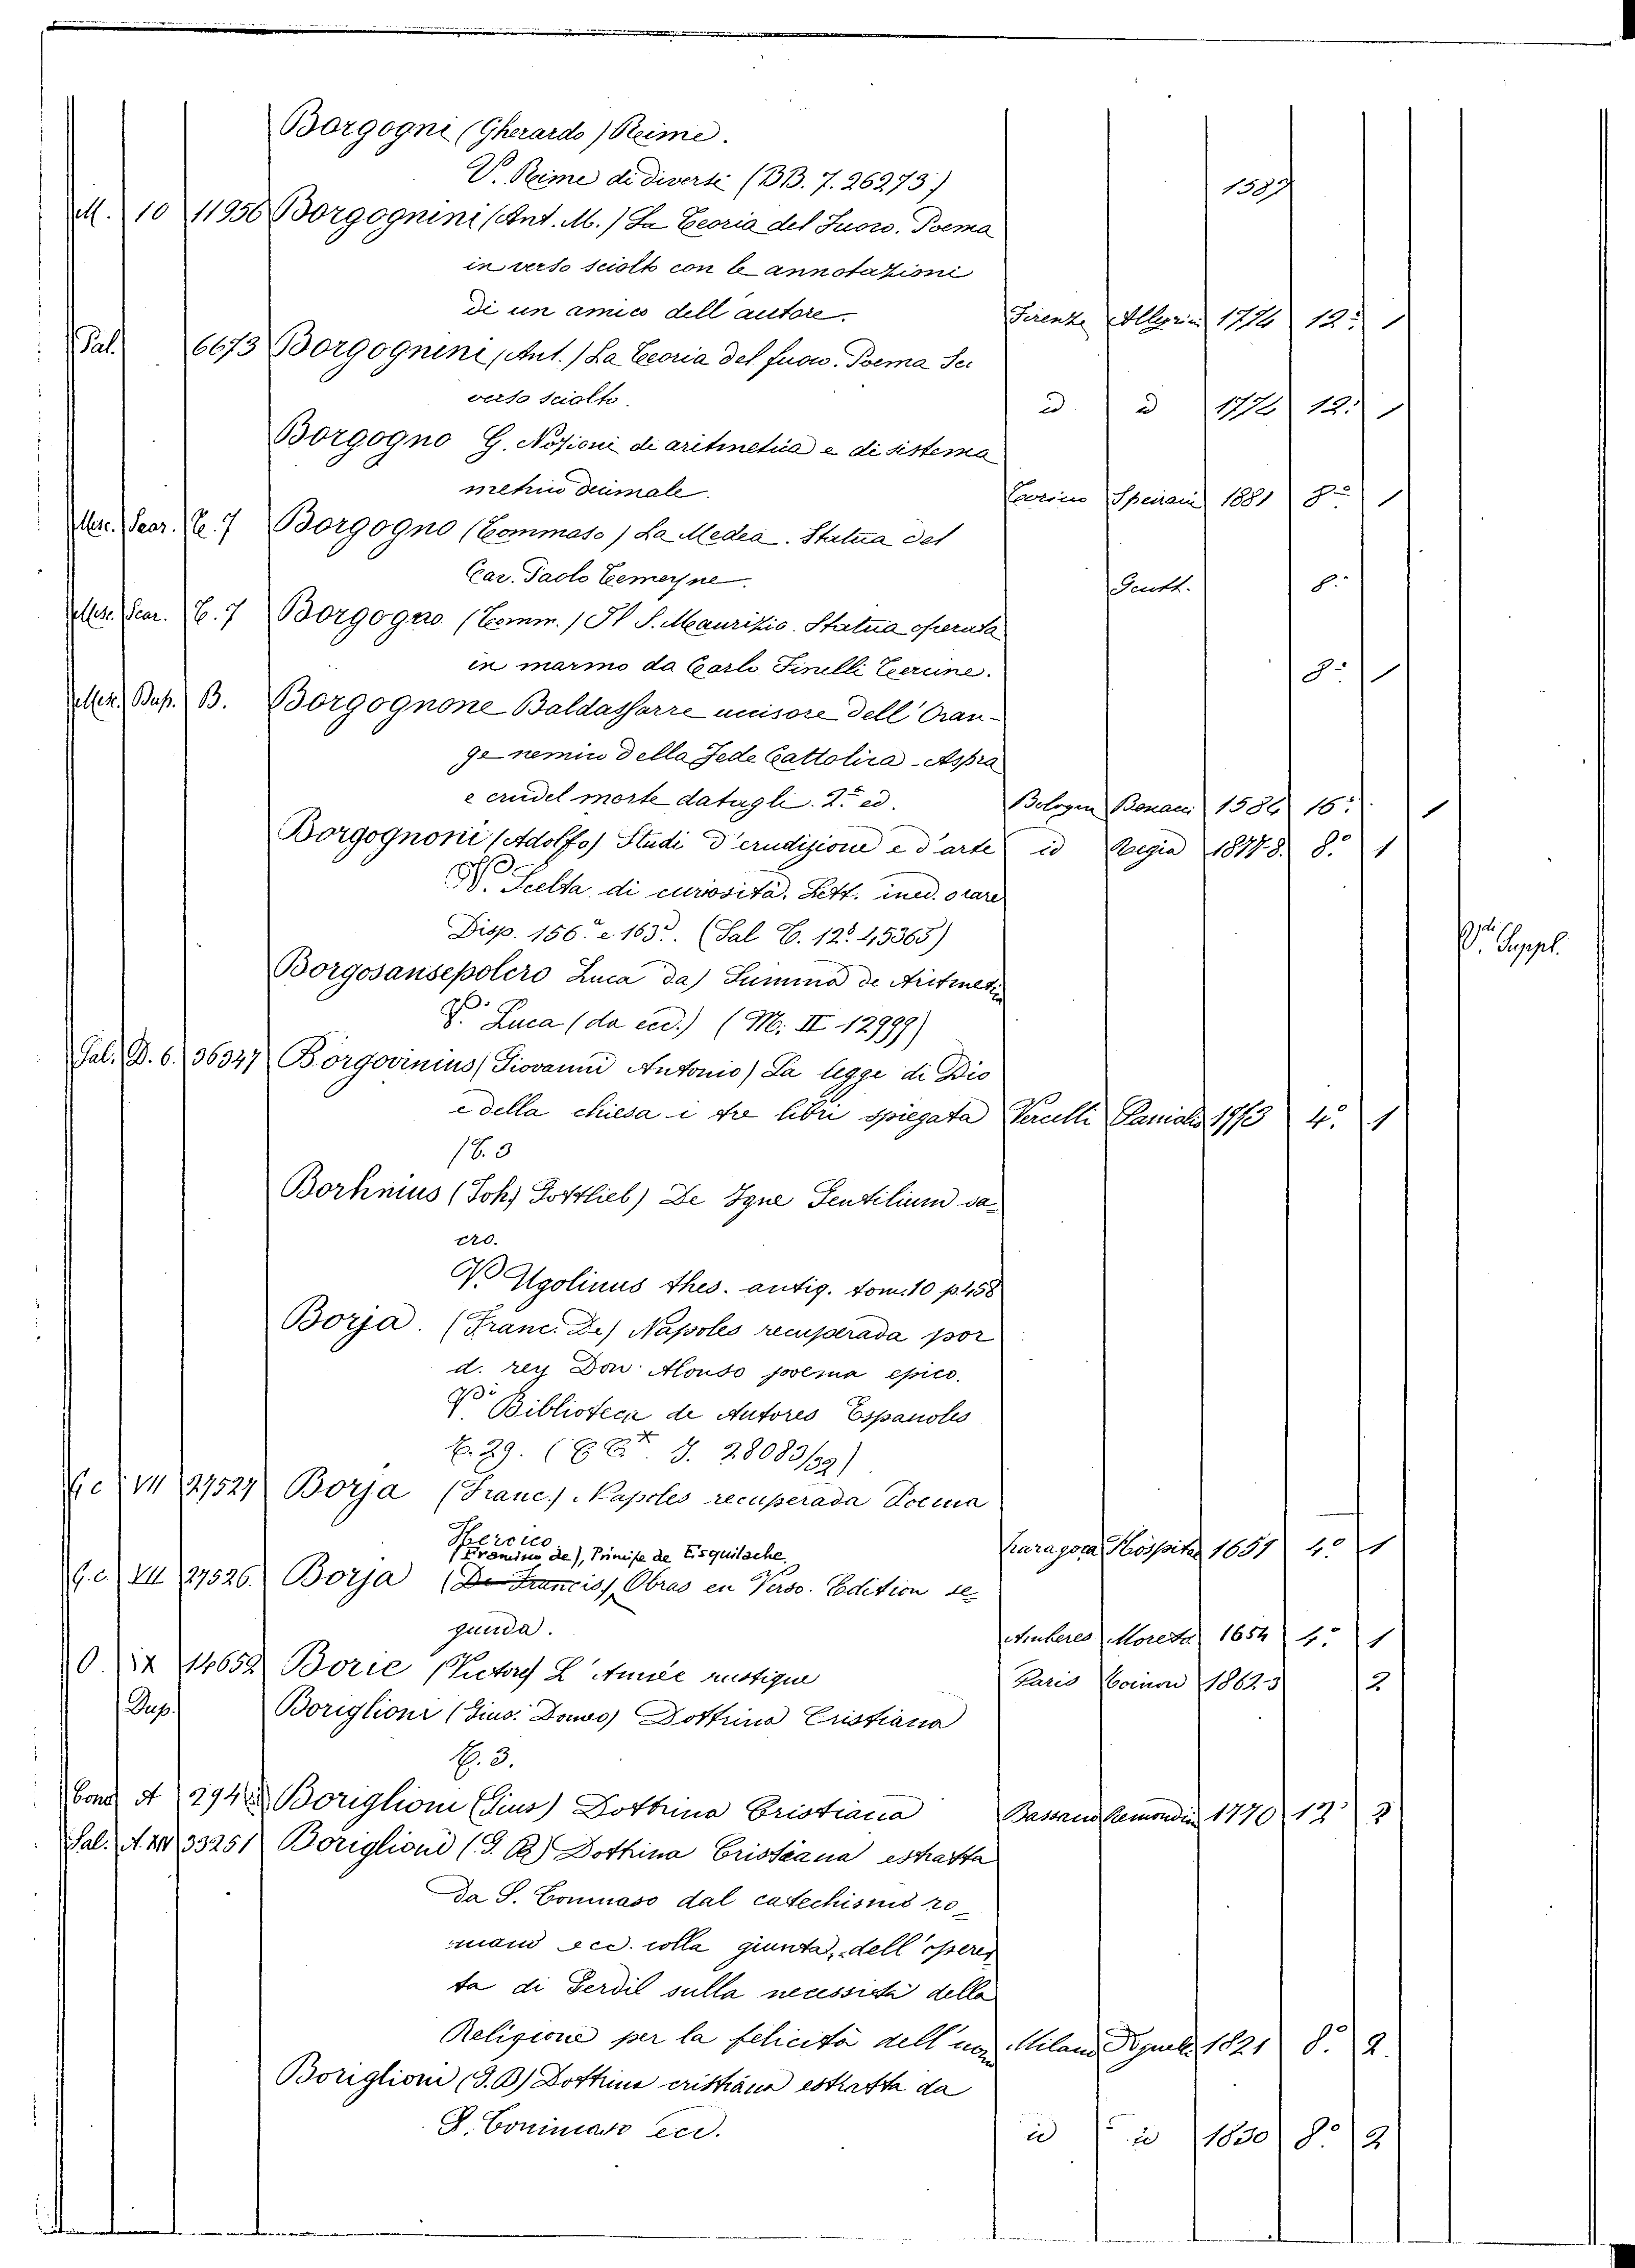 Borgogni (Gherardo) Reime.
V. Reime di diversi (BB. 7. 26273) 1587
M. 10 11956 Borgognini (Ant. M.) La Teoria del Suono. Poema
in verso sciolto con le annotazioni
di un amico dell'autore. Firenze Allegrini 1774 12° 1
Pal. 6673 Borgognini (Ant.) La Teoria del suono. Poema in
verso sciolto. id id 1774 12° 1
Borgogno G. Nozioni di aritmetica e di sistema
metrico decimale. Torino Speirani 1881 8° 1
Misc. Scar. T. 7 Borgogno (Tommaso) La Medea. Statua del
Cav. Paolo 8°
Misc. Scar. T. 7 Borgogno (Tomm.) S. Maurizio. Statua operata
in marmo da Carlo Finelli 8° 1
Busp. B. Borgognone Baldassarre uccisore dell'Oran-
ge nemico della Fede Cattolica - Aspra
e crudel morte datagli. 2ª ed. Bologna Bonacci 1584 16° 1
Borgognoni (Adolfo) Studi d'erudizione e d'arte id Regia 1877-8 8° 1
V. Scelta di curiosità. Lett. ined. o rare
Disp. 156ª e 163ª. (Sal C. 12° 45365)
V. Suppl.
Borgosansepolcro Luca da) Summa de Aritmetica
V. Luca (da ecc.) (M. II 12999)
Sal. D. 6. 36347 Borgovinius (Giovanni Antonio) La legge di Dio
e della chiesa i tre libri spiegata Vercelli Panialis 1773 4° 1
T. 3
Borhnius (Joh) Gottlieb) De Igne Gentilium sa-
cro.
V. Ugolinus thes. antiq. tom. 10 p. 458
Borja. (Franc. De) Napoles recuperada por
d. rey Don Alonso poema epico.
V. Biblioteca de Autores Espanoles
T. 29. J. 28083/39)
G. c VII 27527 Borja (Franc.) Napoles recuperada Poema
Heroico Zaragoza Hospital 1651 4° 1
(Francisco de), Principe de Esquilache.
G. c. VII 27526. Borja (De Francis) Obras en Verso. Edition se
gunda. Amberes Moreto 1654 4° 1
O. IX 14652 Borie (Victor) L'Année rustique Paris Coinon 1862-3 2
Dup. Boriglioni (Gius. Domo) Dottrina Cristiana
T. 3.
Cona A 294 Boriglioni (Gius) Dottrina Cristiana Bassano Remondini 1770 12° 2
Sal. A. XIV 33251 Boriglioni (G. B.) Dottrina Cristiana estratta
da S. Tommaso dal catechismo ro-
mano ecc. colla giunta, dell'operet
ta di Gerdil sulla necessità della
Religione per la felicità dell'uomo Milano 1821 8° 2.
Boriglioni (G. B.) Dottrina cristiana estratta da
S. Tommaso ecc. id id 1830 8° 2